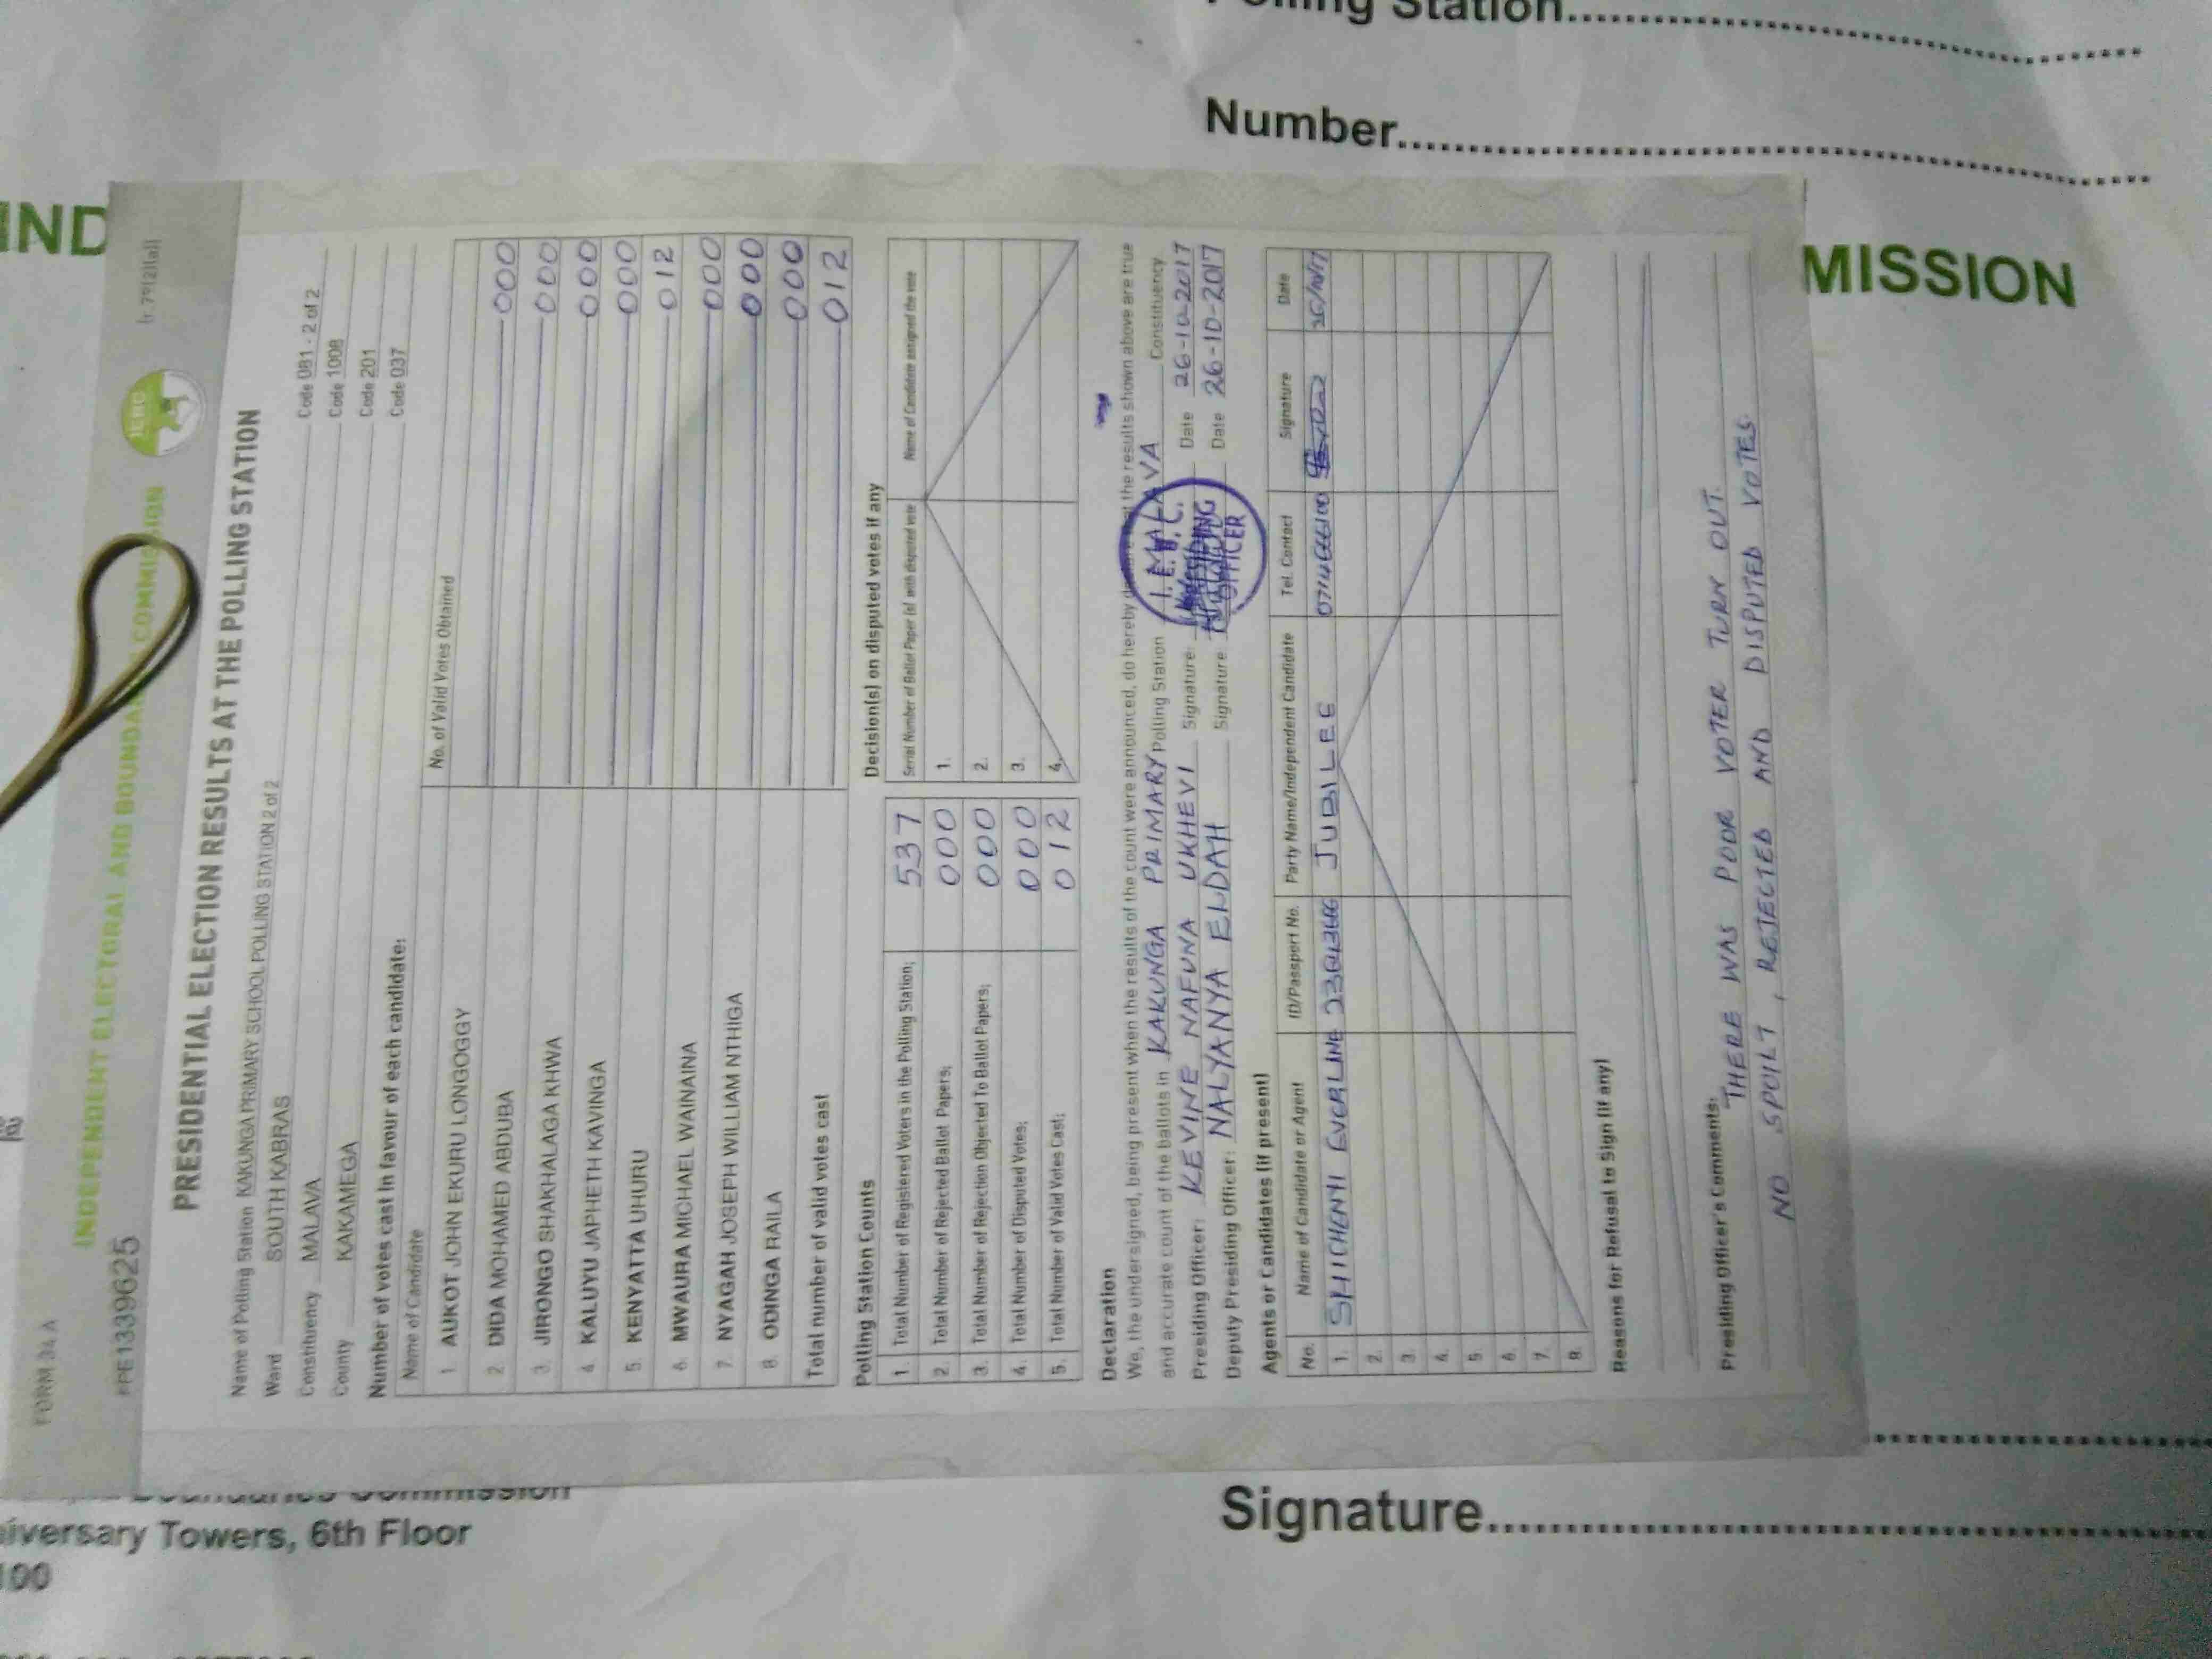 Polling Station
Number
IND
MISSION
FORM 34 A
(r.79(2)(a))
INDEPENDENT ELECTORAL AND BOUNDARIES COMMISSION
IEBC
PRESIDENTIAL ELECTION RESULTS AT THE POLLING STATION
Name of Polling Station KAKUNGA PRIMARY SCHOOL POLLING STATION 2 of 2 Code 081 - 2 of 2
Ward SOUTH KABRAS Code 1008
Constituency MALAVA Code 201
County KAKAMEGA Code 037
Number of votes cast in favour of each candidate:
Name of Candidate No. of Valid Votes Obtained
1 AUKOT JOHN EKURU LONGOGGY 000
2. DIDA MOHAMED ABDUBA 000
3. JIRONGO SHAKHALAGA KHWA 000
4 KALUYU JAPHETH KAVINGA 000
5. KENYATTA UHURU 012
6. MWAURA MICHAEL WAINAINA 000
7. NYAGAH JOSEPH WILLIAM NTHIGA 000
8. ODINGA RAILA 000
Total number of valid votes cast 012
Polling Station Counts
1. Total Number of Registered Voters in the Polling Station; 537
2. Total Number of Rejected Ballot Papers; 000
3. Total Number of Rejection Objected To Ballot Papers; 000
4. Total Number of Disputed Votes; 000
5. Total Number of Valid Votes Cast; 012
Decision(s) on disputed votes if any
Serial Number of Ballot Paper (s) with disputed vote Name of Candidate assigned the vote
1.
2.
3.
4.
Declaration
We, the undersigned, being present when the results of the count were announced, do hereby the results shown above are true
and accurate count of the ballots in KAKUNGA PRIMARY Polling Station MALAVA Constituency
Presiding Officer: KEVINE NAFUNA UKHEVI Signature: Date 26-10-2017
Deputy Presiding Officer: NALYANYA ELDAH Signature Date 26-10-2017
OFFICER
Agents or Candidates (if present)
No. Name of Candidate or Agent ID/Passport No. Party Name/Independent Candidate Tel. Contact Signature Date
1. SHICHENYI EVERLINE JUBILEE 26/10/17
2.
3.
4.
5.
6.
7.
8.
Reasons for Refusal to Sign (if any)
Presiding Officer's Comments:
THERE WAS POOR VOTER TURN OUT.
NO SPOILT, REJECTED AND DISPUTED VOTES.
Boundaries Commission
Towers, 6th Floor
Signature